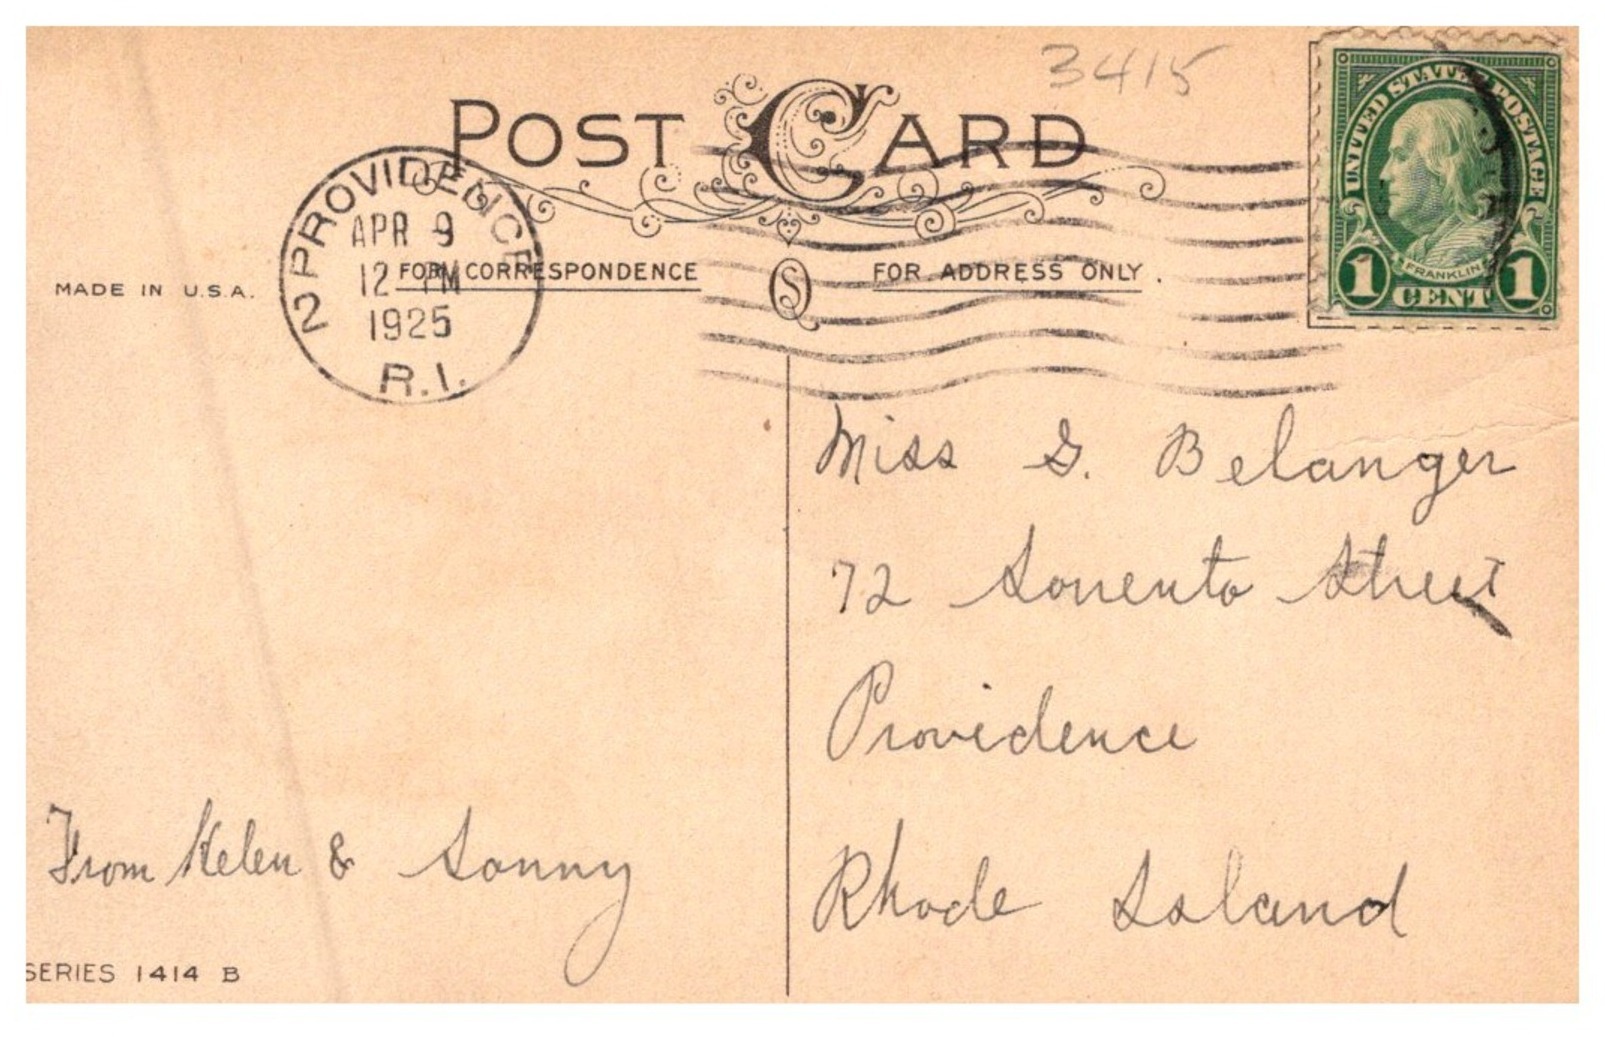 3415
POST CARD
UNITED STATES POSTAGE
FRANKLIN
1 CENT 1
2 PROVIDENCE
APR 9
12 PM
1925
R.I.
MADE IN U.S.A.
FOR CORRESPONDENCE
FOR ADDRESS ONLY.
Miss G. Belanger
72 Sorrento Street
Providence
Rhode Island
From Helen & Sonny
SERIES 1414 B